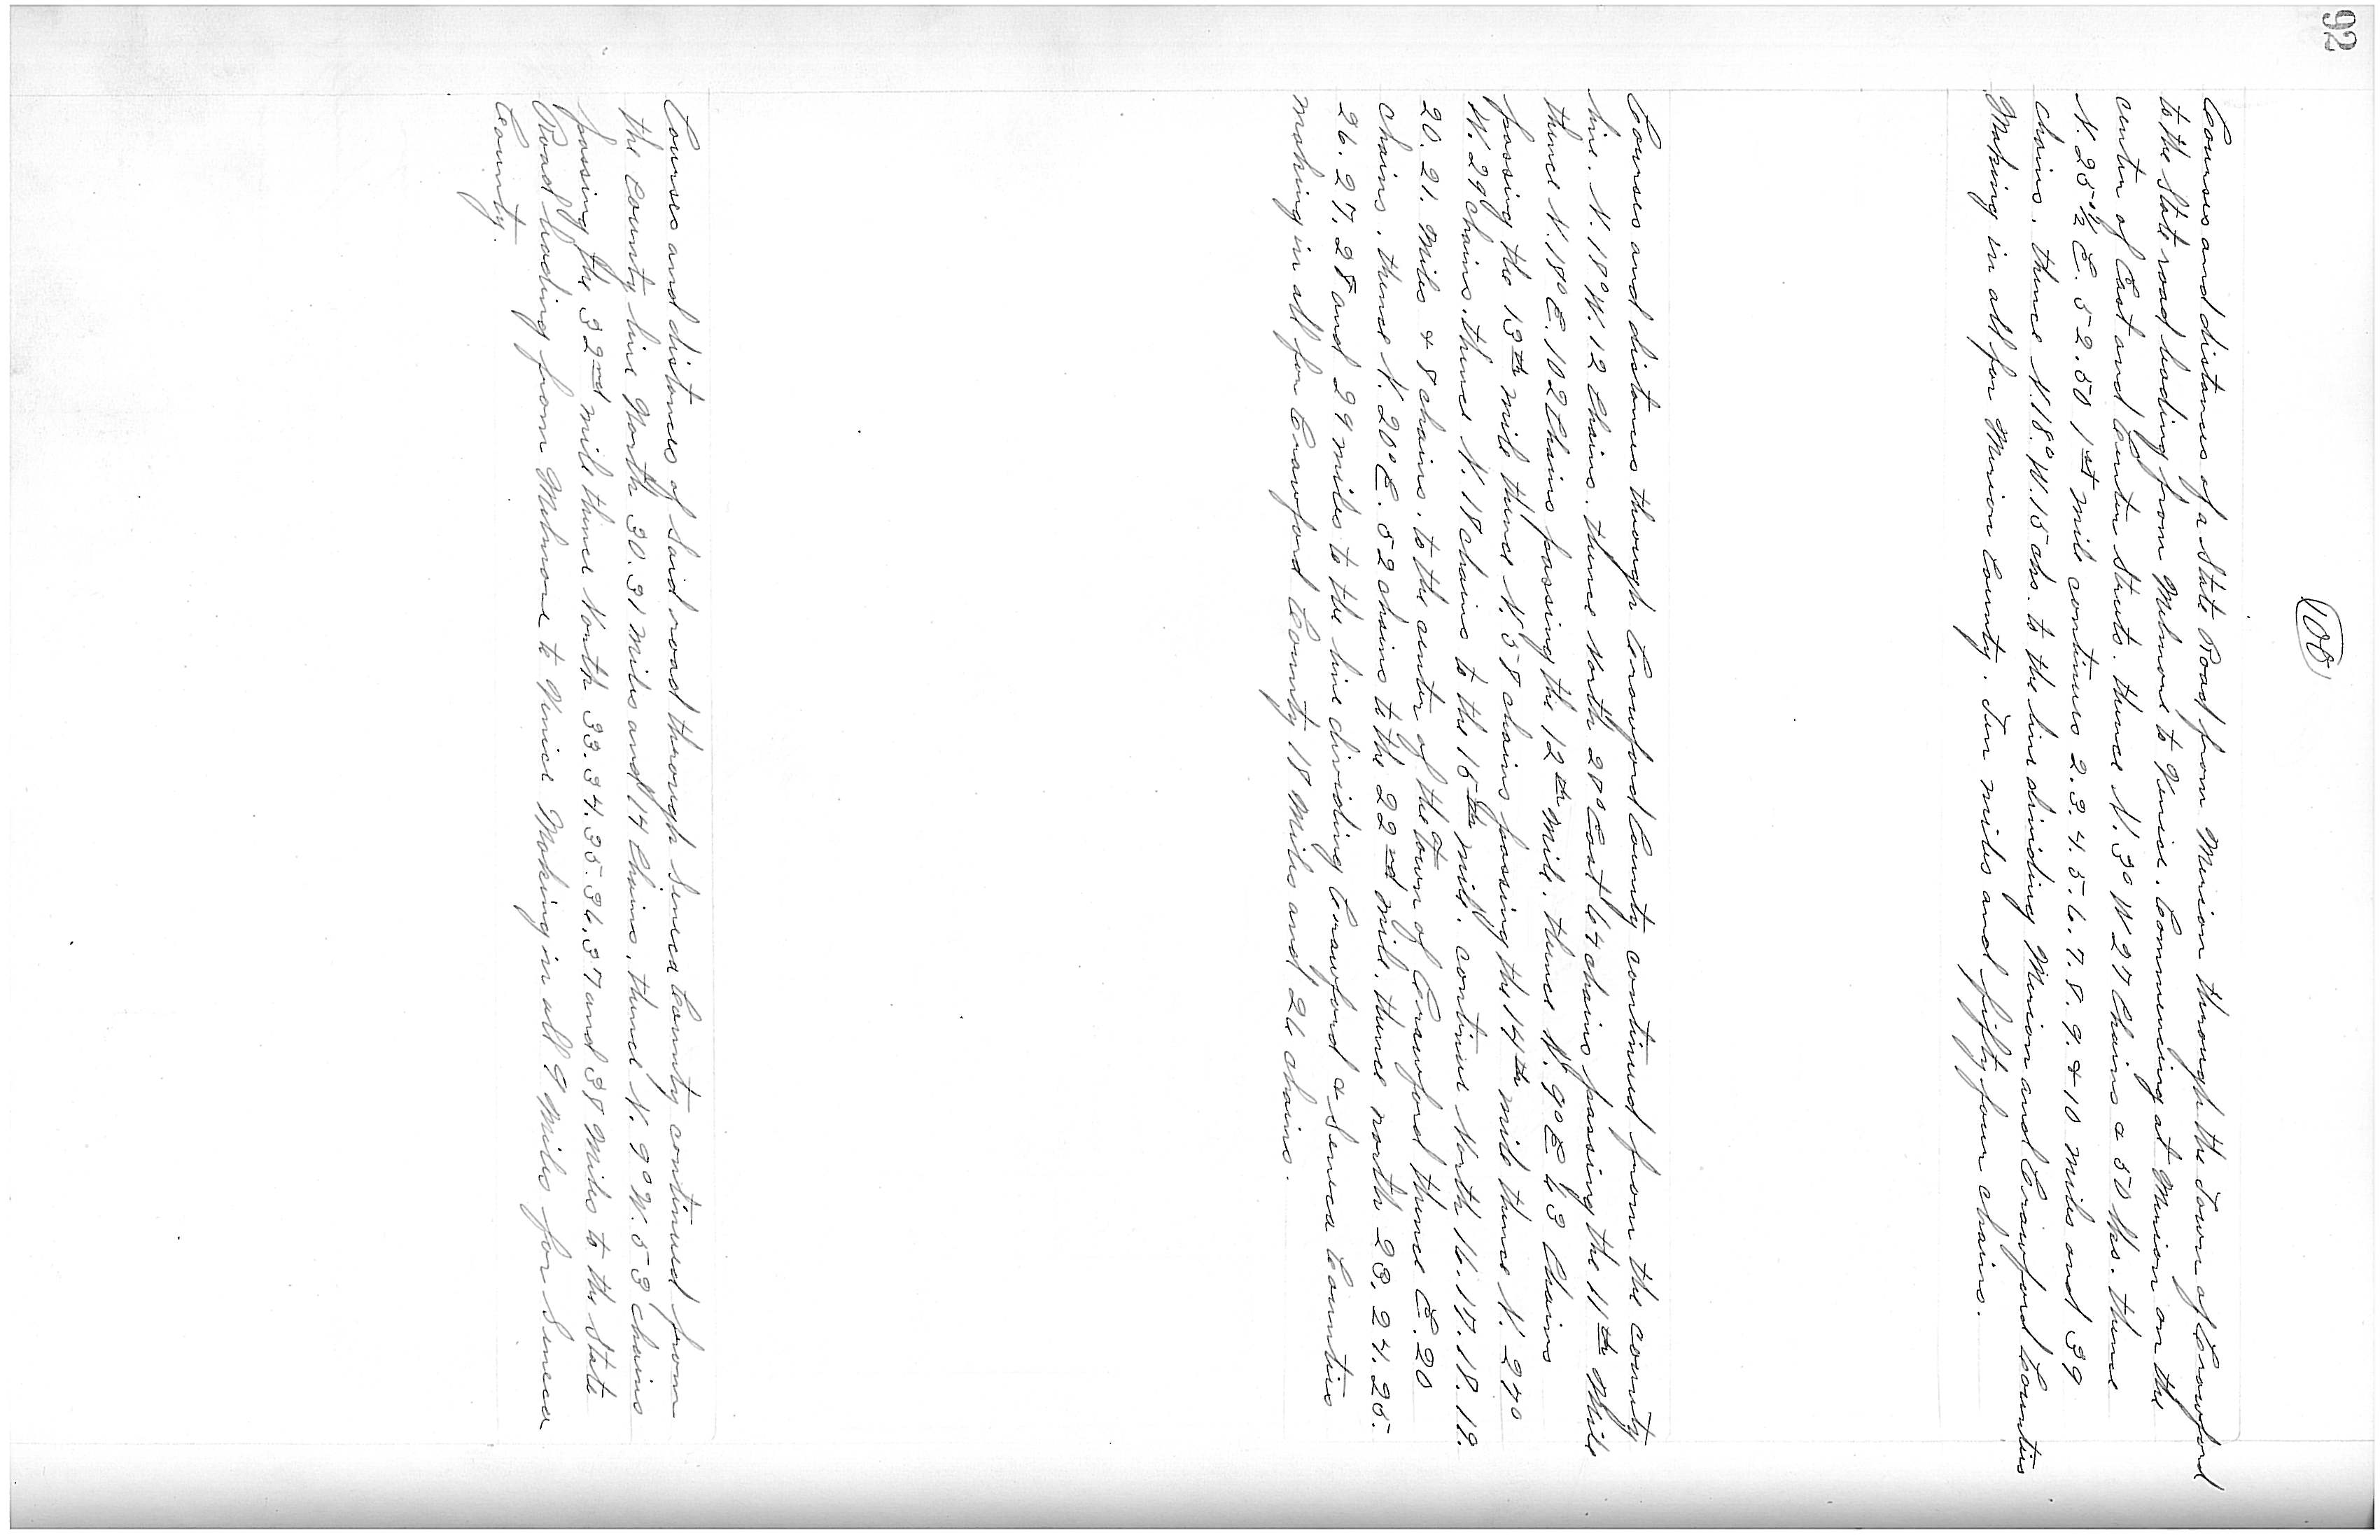 92
100
Courses and distances of a State Road from Marion through the Town of Crawford
to the State road leading from Melmore to Venice. Commencing at Marion on the
center of East and Center Streets. thence N. 3° W 27 Chains & 50 lks. thence
N. 25 1/2 E. 52.50 1st mile continues 2. 3. 4. 5. 6. 7. 8. 9. & 10 miles and 39
chains. thence N. 18.° W. 15 chs. to the line dividing Marion and Crawford Counties
Making in all for Marion County. Ten miles and fifty four chains.
Courses and distances through Crawford County continued from the county
line. N. 18° W. 12 Chains. thence North 28° East 64 chains passing the 11th Mile
thence N. 18° E. 102 Chains passing the 12th Mile. thence N. 9° E 63 Chains
passing the 13th mile thence N. 58 chains passing the 14th mile thence N. 24°
W. 29 chains. thence N. 18 chains to the 15th mile. continue North 16. 17. 18. 19.
20. 21. Miles & 8 chains. to the center of the Town of Crawford thence E. 20
chains. thence N. 20° E. 52 chains to the 22nd mile. thence north 23. 24. 25.
26. 27. 28 and 29 miles to the line dividing Crawford & Seneca Counties
making in all for Crawford County 18 Miles and 26 chains.
Courses and distances of Said road through Seneca County continued from
the County line North 30. 31 Miles and 14 Chains, thence N. 9° W. 53 Chains
passing the 32nd mile thence North 33. 34. 35. 36. 37 and 38 Miles to the State
Road leading from Melmore to Venice Making in all 9 Miles for Seneca
County.